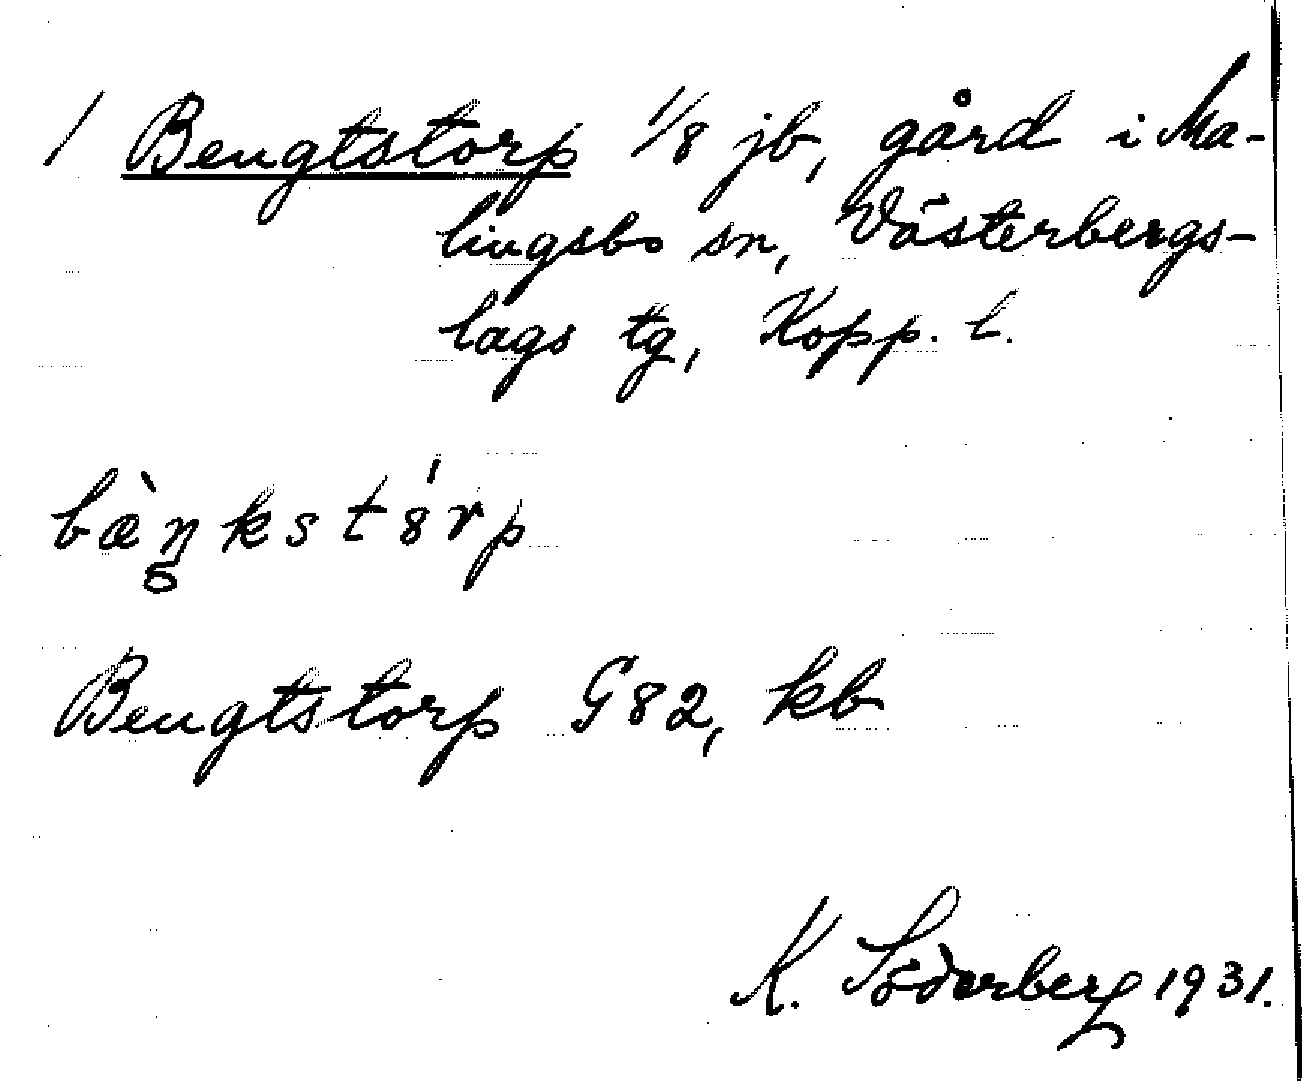 1 Bengtstorp 1/8 jb, gård i Ma-
lingsbo sn, Västerbergs-
lags tg, Kopp. l.
bæ̀ŋkstó̤rp
Bengtstorp G82, kb
K. Söderberg 1931.